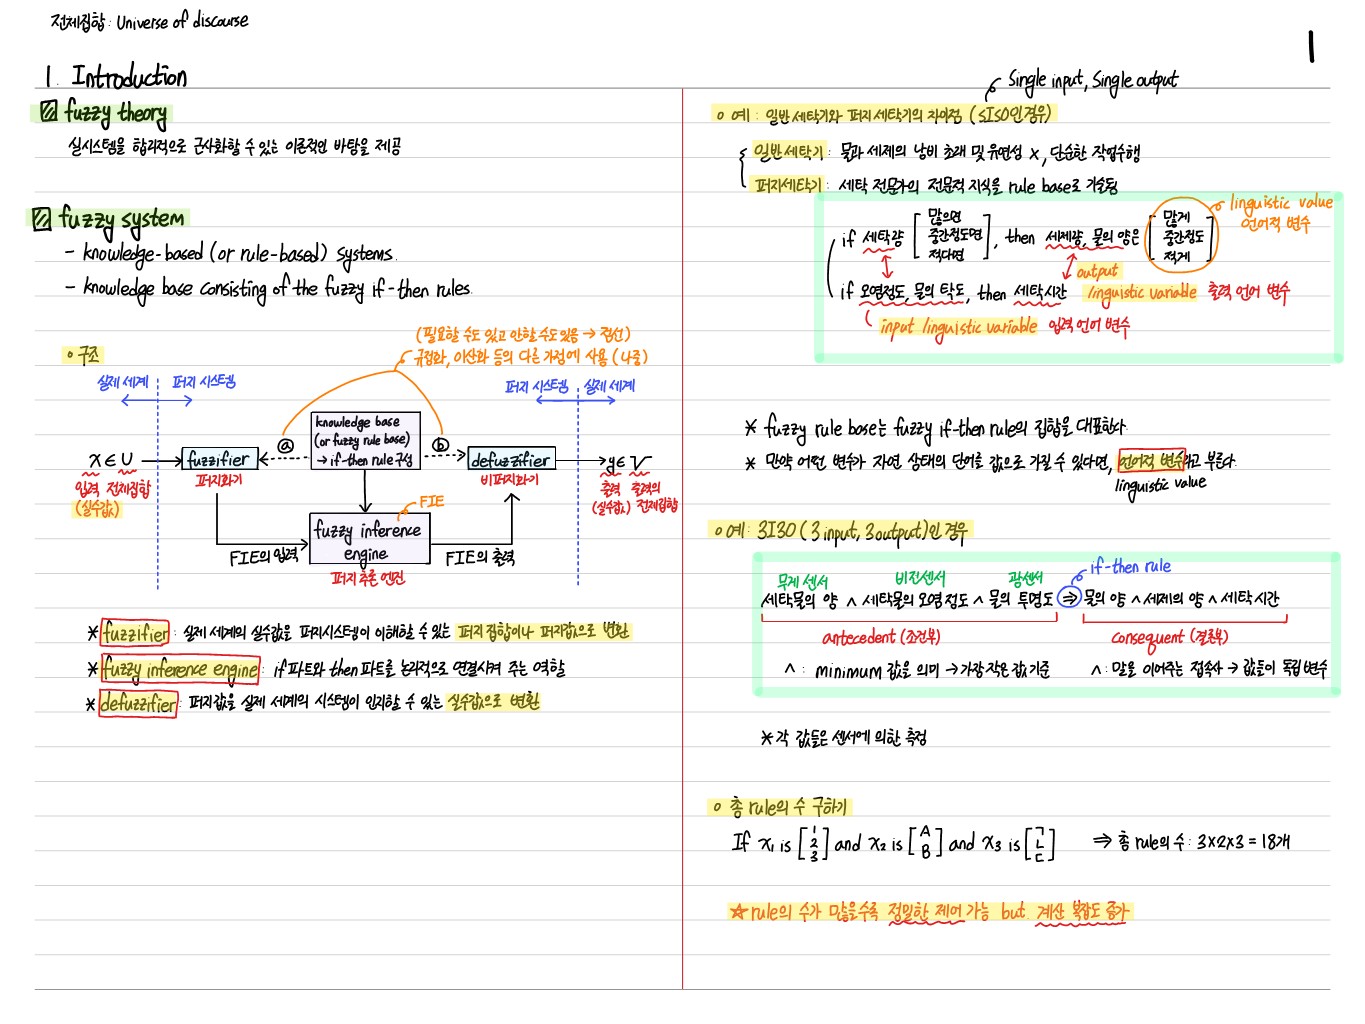 전체집합 : Universe of discourse
1
1. Introduction
fuzzy theory
실시스템을 합리적으로 근사화할 수 있는 이론적인 바탕을 제공
fuzzy system
- knowledge-based (or rule-based) systems.
- knowledge base consisting of the fuzzy if-then rules.
구조
(필요할 수도 있고 안할 수도 있음 → 점선)
규정화, 이산화 등의 다른 가정에 사용 (나중)
실제 세계 퍼지 시스템
퍼지 시스템 실제 세계
knowledge base
(or fuzzy rule base)
→ if-then rule 구성
ⓐ
ⓑ
x ∈ U
fuzzifier
defuzzifier
y ∈ V
입력 전체집합
(실수값)
퍼지화기
비퍼지화기
출력 출력의
(실수값) 전체집합
FIE
fuzzy inference
engine
FIE의 입력
FIE의 출력
퍼지 추론 엔진
* fuzzifier : 실제 세계의 실수값을 퍼지시스템이 이해할 수 있는 퍼지 집합이나 퍼지값으로 변환
* fuzzy inference engine : if파트와 then파트를 논리적으로 연결시켜 주는 역할
* defuzzifier : 퍼지값을 실제 세계의 시스템이 인지할 수 있는 실수값으로 변환
Single input, Single output
예 : 일반 세탁기와 퍼지 세탁기의 차이점 (SISO인 경우)
일반세탁기 : 물과 세제의 낭비 초래 및 유연성 x, 단순한 작업수행
퍼지세탁기 : 세탁 전문가의 전문적 지식을 rule base로 기술됨
linguistic value
언어적 변수
if 세탁량 [많으면 중간정도면 적다면], then 세제량, 물의 양은 [많게 중간정도 적게]
output
linguistic variable 출력 언어 변수
if 오염정도, 물의 탁도, then 세탁시간
input linguistic variable 입력 언어 변수
* fuzzy rule base는 fuzzy if-then rule의 집합을 대표한다.
* 만약 어떤 변수가 자연 상태의 단어를 값으로 가질 수 있다면, 언어적 변수라고 부른다.
linguistic value
예 : 3I3O (3 input, 3 output)인 경우
if-then rule
무게 센서 비전센서 광센서
세탁물의 양 ∧ 세탁물의 오염 정도 ∧ 물의 투명도 ⇒ 물의 양 ∧ 세제의 양 ∧ 세탁시간
antecedent (조건부) consequent (결론부)
∧ : minimum 값을 의미 → 가장 작은 값 기준
∧ : 말을 이어주는 접속사 → 값들이 독립 변수
* 각 값들은 센서에 의한 측정
총 rule의 수 구하기
If x₁ is [1 2 3] and x₂ is [A B] and x₃ is [ㄱ ㄴ ㄷ] ⇒ 총 rule의 수 : 3x2x3 = 18개
☆ rule의 수가 많을수록 정밀한 제어 가능 but 계산 복잡도 증가